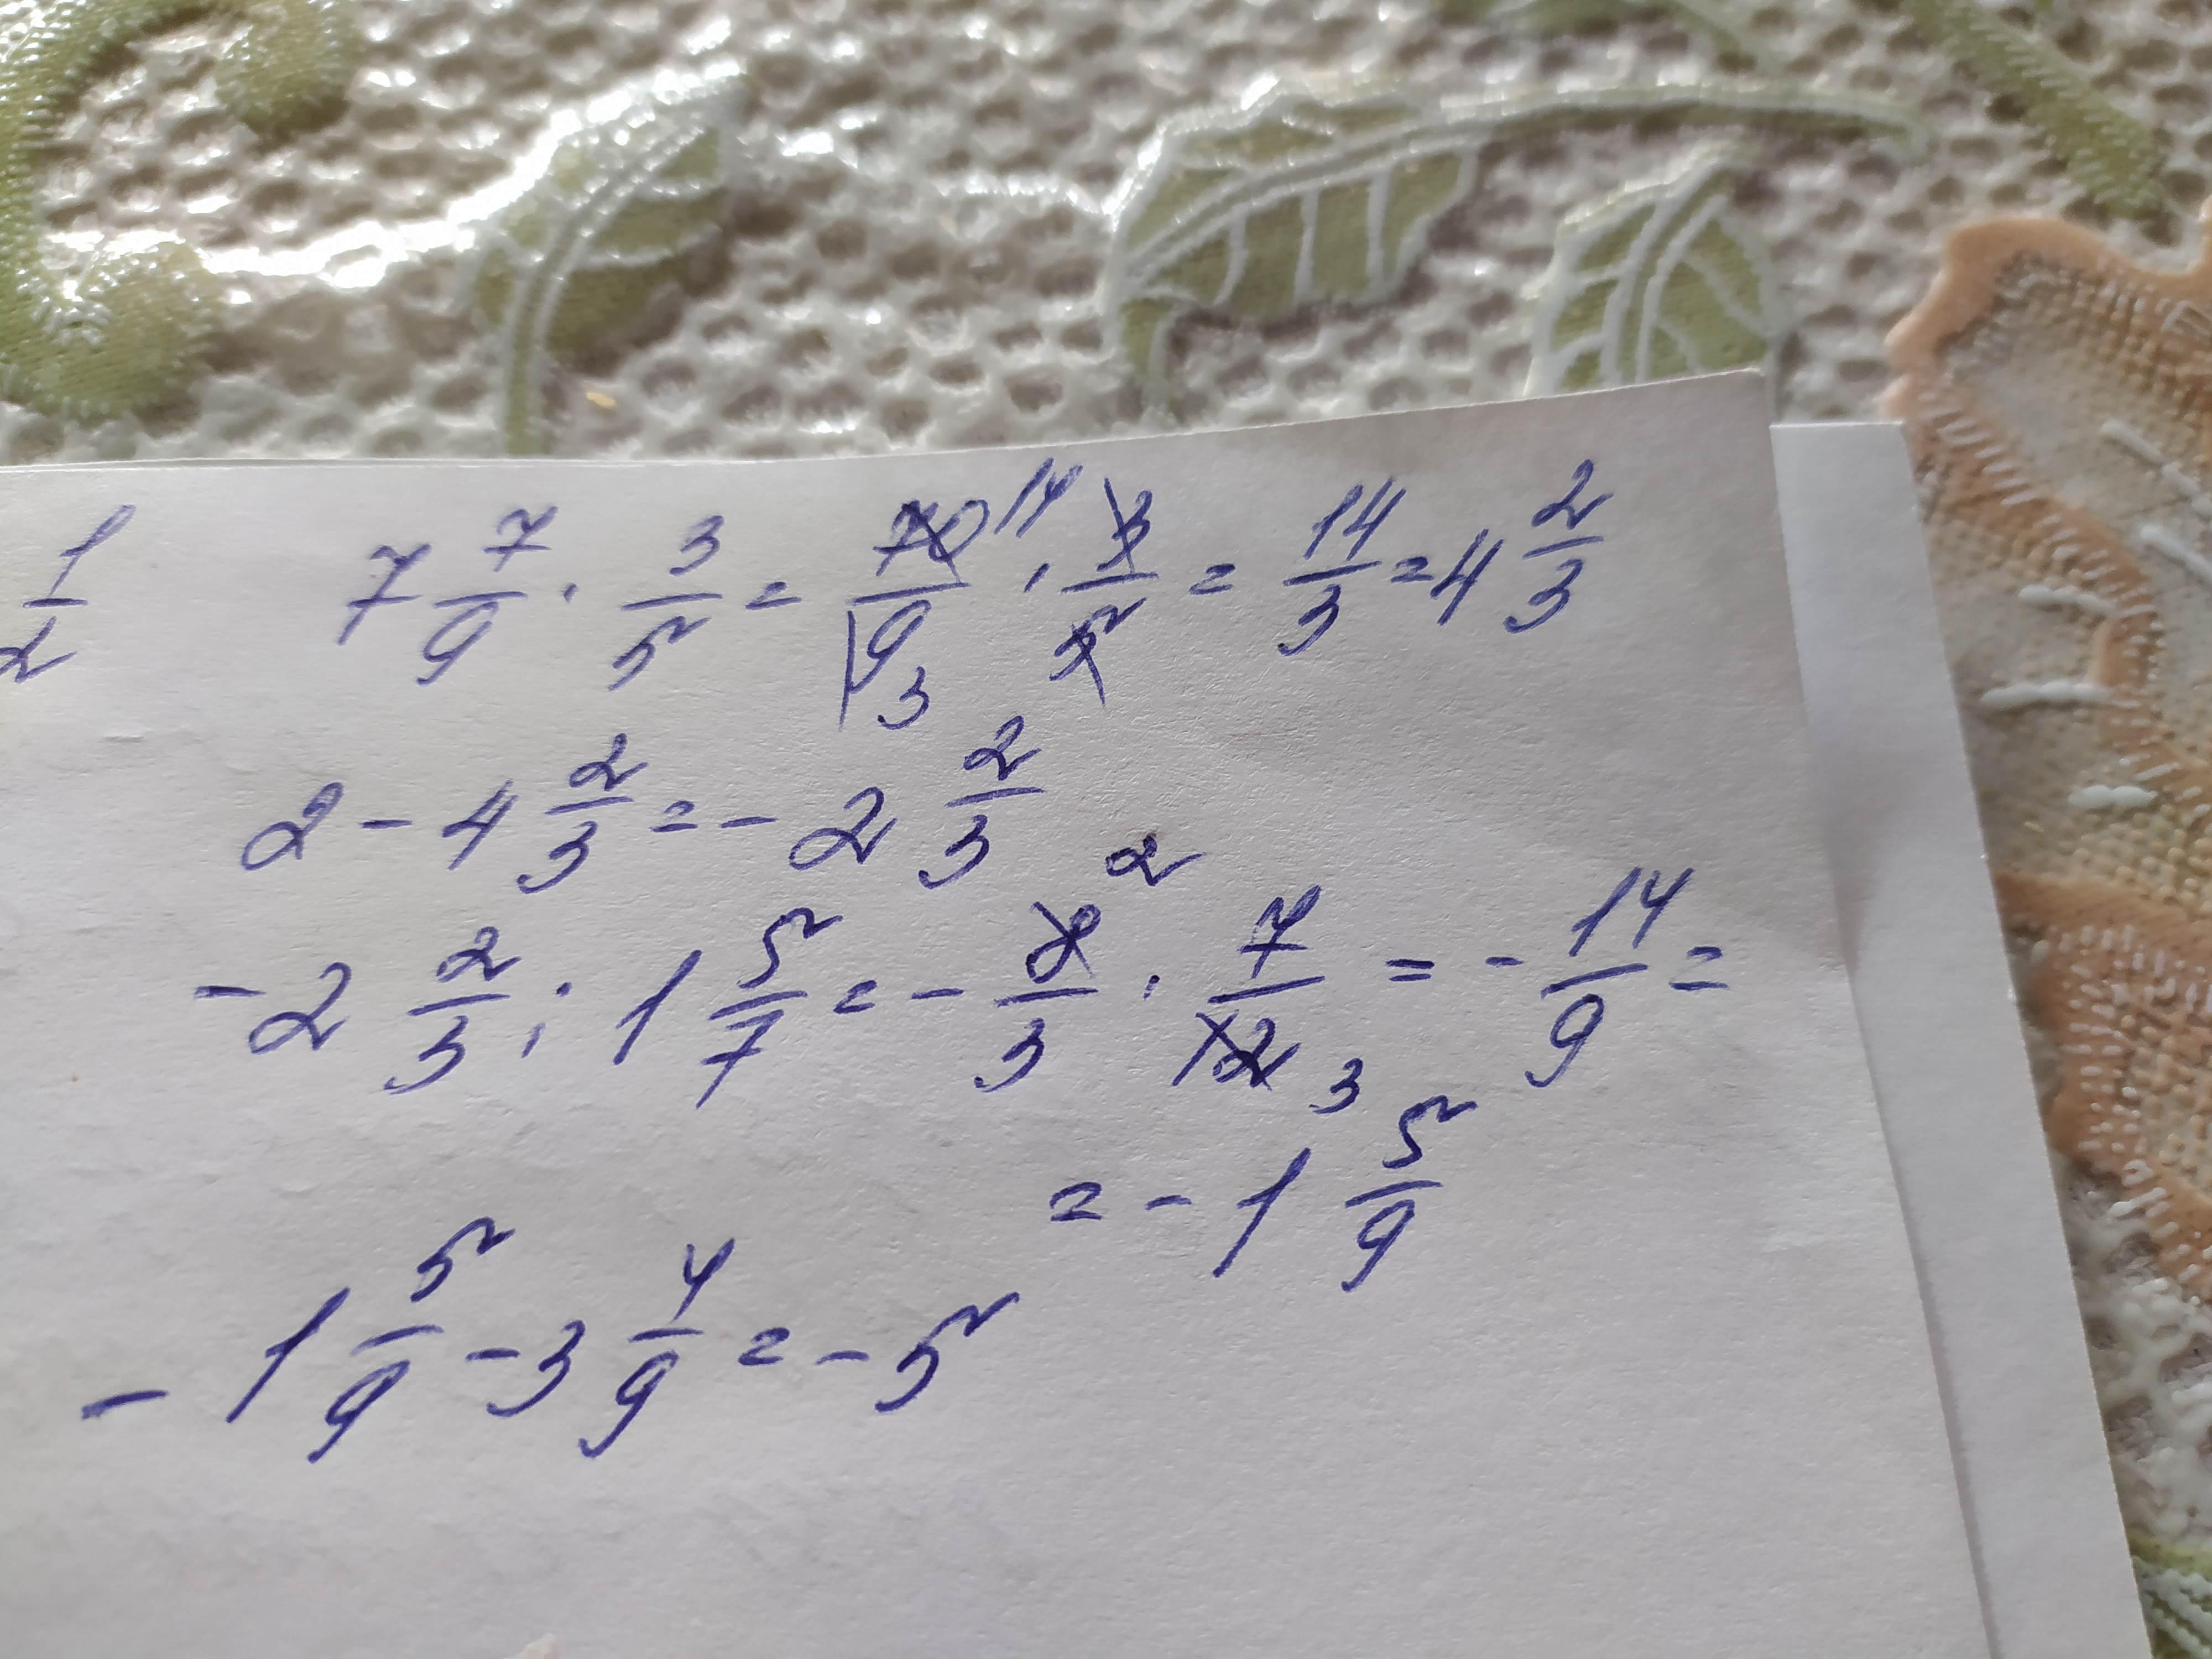 1/2 7 7/9 · 3/5 = 70/9 14 3 · 3/5 = 14/3 = 4 2/3
2 - 4 2/3 = - 2 2/3
- 2 2/3 : 1 5/7 = - 8/3 2 · 7/12 3 = - 14/9 =
= - 1 5/9
- 1 5/9 - 3 4/9 = - 5